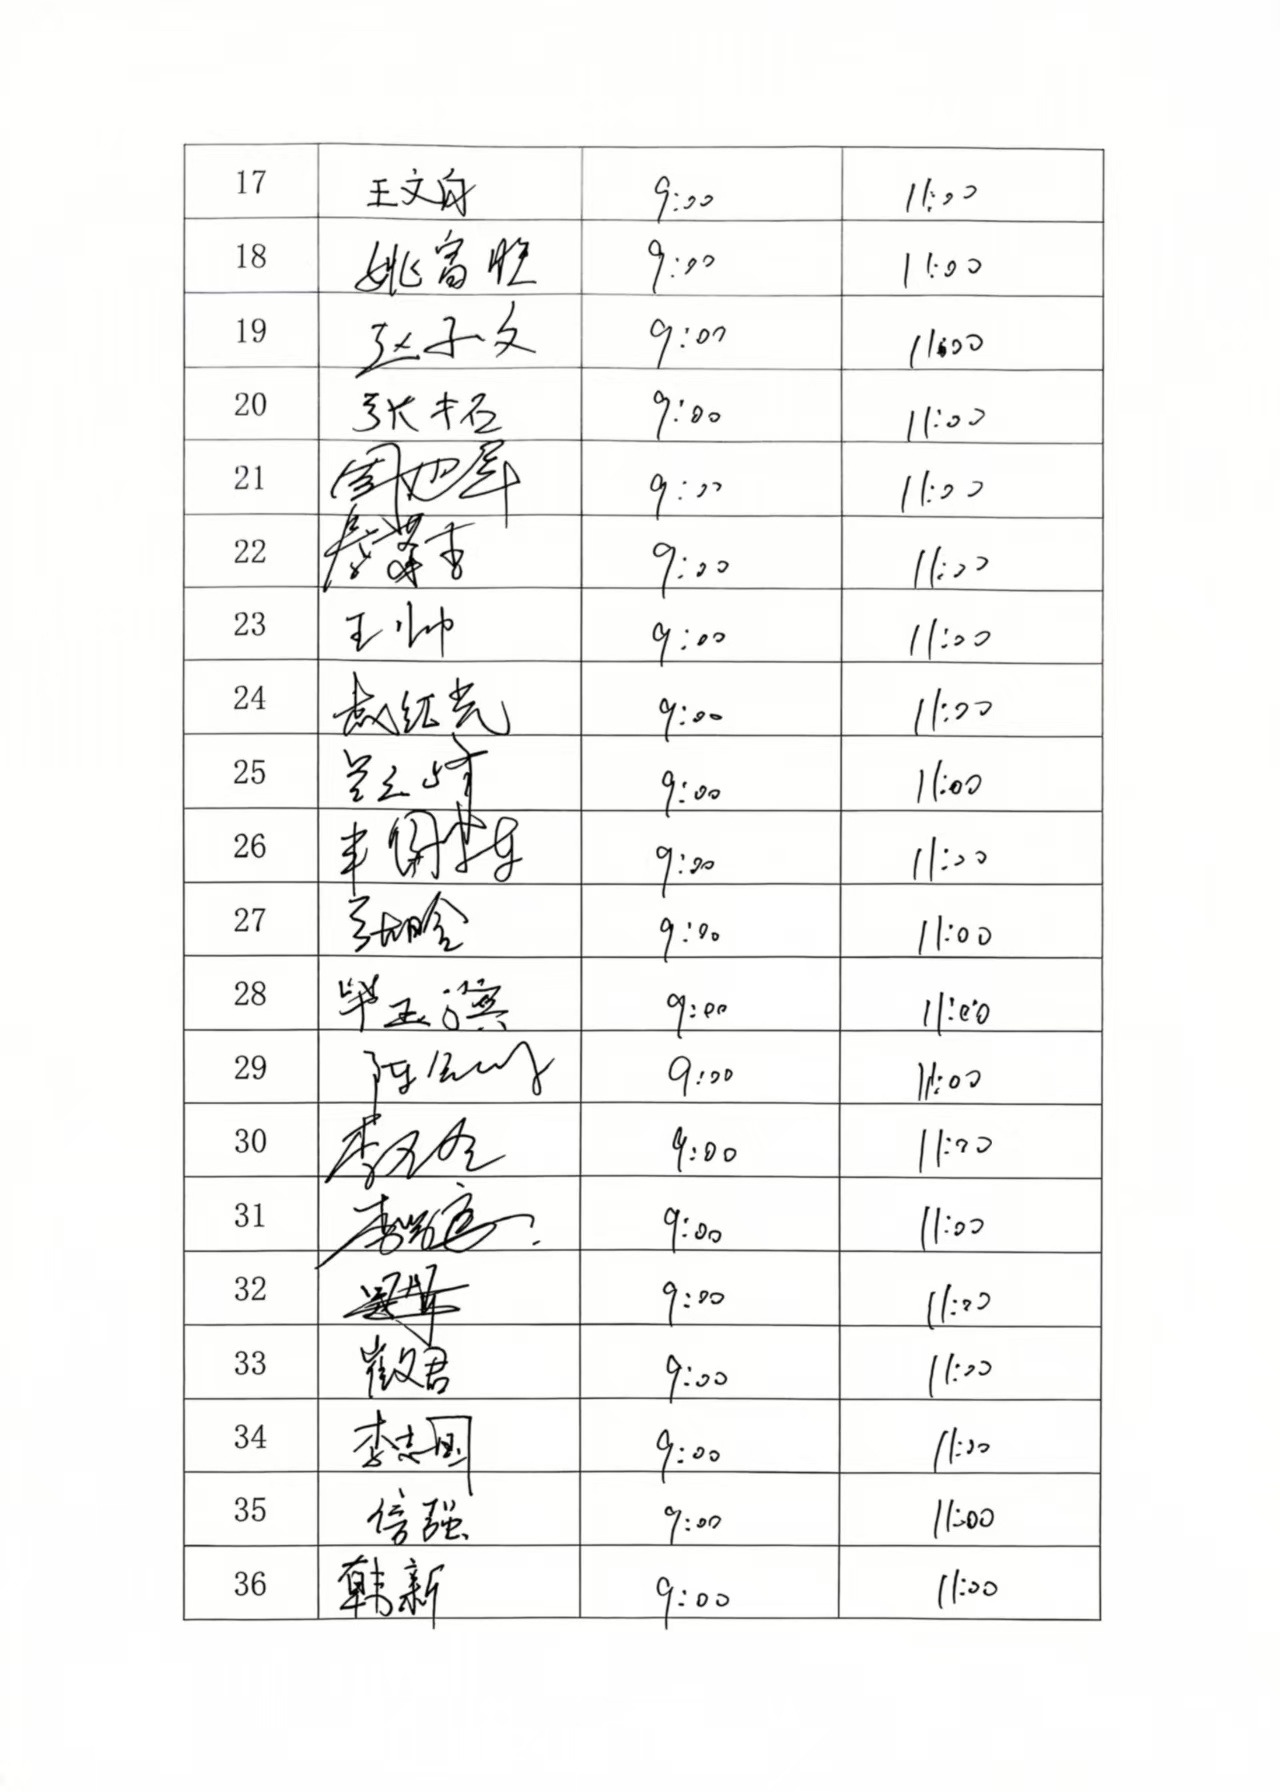 17 王文舟 9:00 11:00
18 姚富 9:00 11:00
19 赵子文 9:00 11:00
20 张 石 9:00 11:00
21 9:00 11:00
22 9:00 11:00
23 王帅 9:00 11:00
24 红光 9:00 11:00
25 9:00 11:00
26 9:00 11:00
27 张晗 9:00 11:00
28 毕玉滨 9:00 11:00
29 陈 9:00 11:00
30 李 9:00 11:00
31 李 9:00 11:00
32 9:00 11:00
33 崔文君 9:00 11:00
34 李志国 9:00 11:00
35 信强 9:00 11:00
36 韩新 9:00 11:00